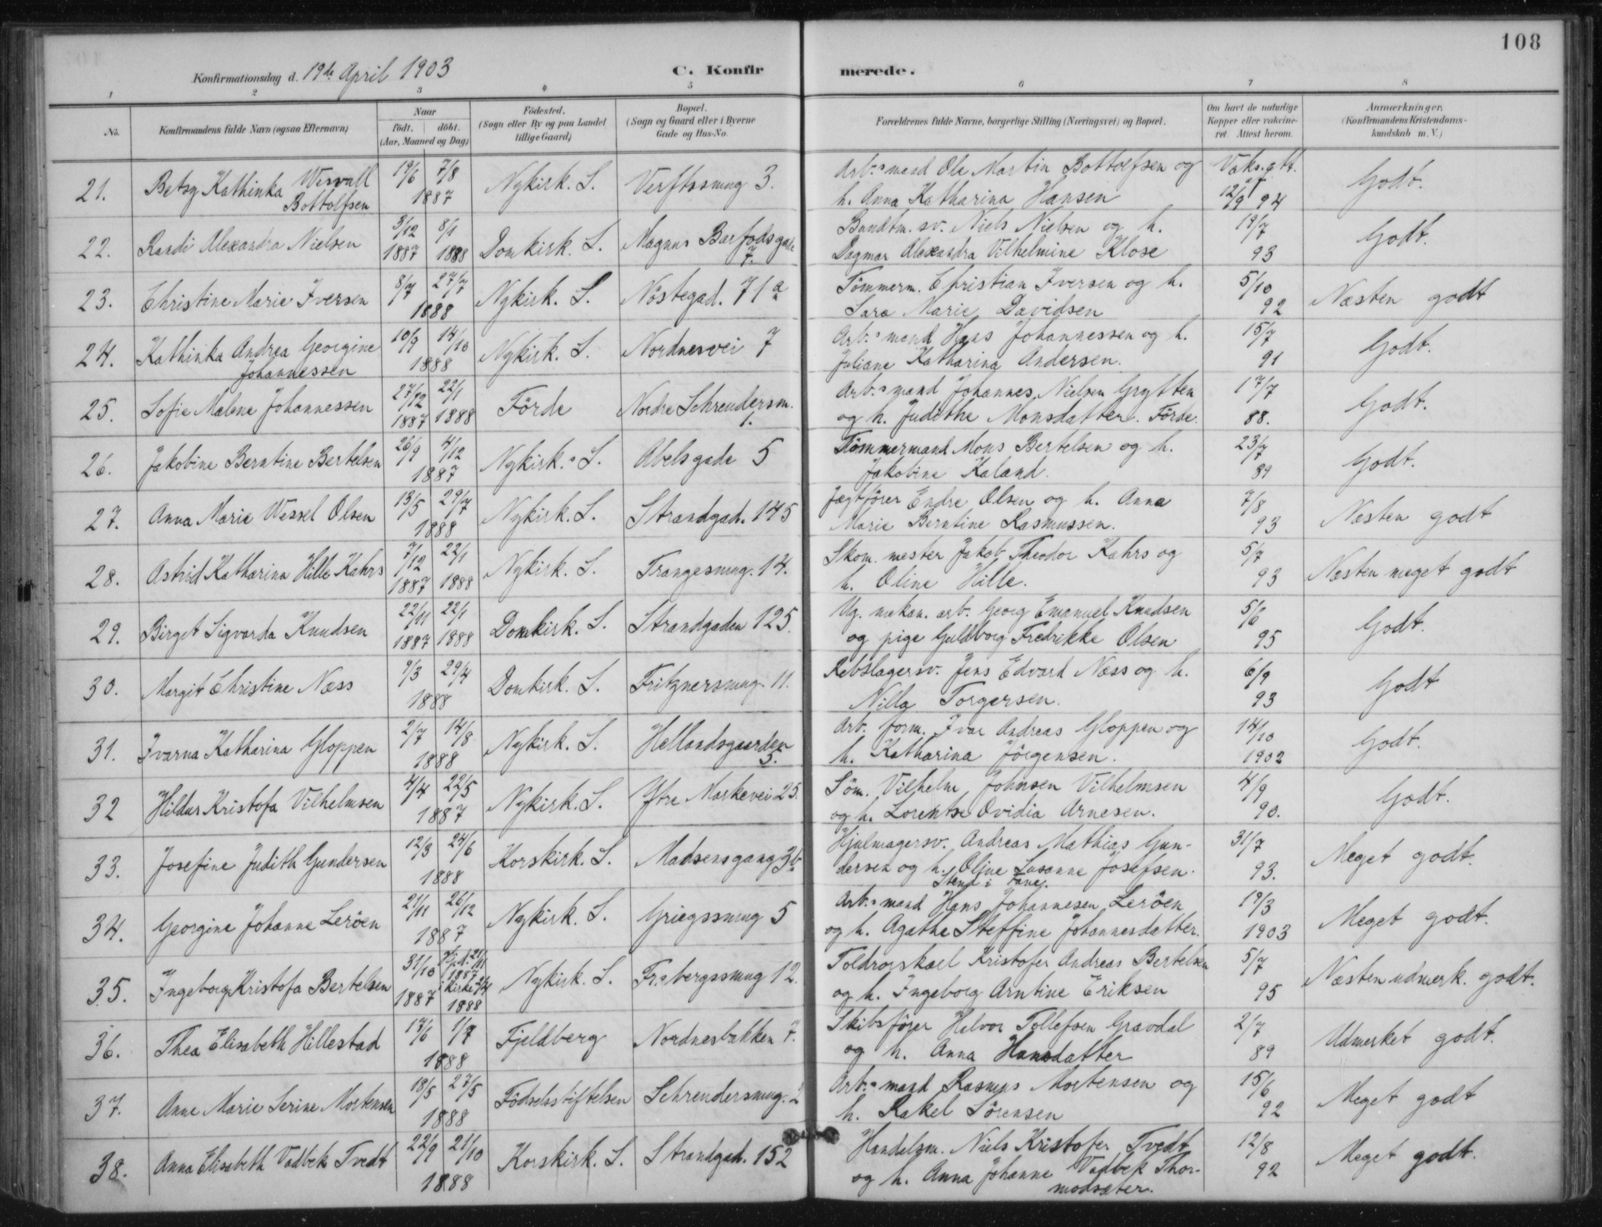 108
Konfirmationsdag d. 19de April 1903
C. Konfirmerede.
1 2 3 4 5 6 7 8
No.
Konfirmandens fulde Navn (ogsaa Efternavn)
Naar
født. døbt.
(Aar, Maaned og Dag)
Fødested.
(Sogn eller By og paa Landet
tillige Gaard)
Bopæl.
(Sogn og Gaard eller i Byerne
Gade og Hus-No.
Forældrenes fulde Navne, borgerlige Stilling (Næringsvei) og Bopæl.
Om havt de naturlige
Kopper eller vakcine-
ret. Attest herom.
Anmærkninger.
(Konfirmandens Kristendoms-
kundskab m. V.)
21. Betsy Kathinka Wesvall Bottolfsen 19/6 7/8 1887 Nykirk. S. Verftssmug 3. Arb.mand Ole Martin Bottolfsen og
h. Anna Katharina Hansen Vaks.att. 12/9 94 Godt.
22. Randi Alexandra Nielsen 3/12 1887 8/1 1888 Domkirk. S. Magnus Barfodsgade 7. Bundtm. sv. Niels Nielsen og h.
Dagmar Alexandra Vilhelmine Klose 19/7 93 Godt.
23. Christine Marie Iversen 8/7 27/7 1888 Nykirk. S. Nöstegad. 71a Tömmerm. Christian Iversen og h.
Sara Marie Davidsen 5/10 92 Næsten godt
24. Kathinka Andrea Georgine Johannessen 10/9 14/10 1888 Nykirk. S. Nordnesvei 7 Arb.mand Hans Johannessen og h.
Juliane Katharina Andersen. 15/7 91 Godt.
25. Sofie Malene Johannessen 27/12 1887 22/1 1888 Förde Nordre Schreudersm. 1. Arb.mand Johannes Nielsen Grytten
og h. Judithe Monsdatter. Förde. 17/7 88. Godt.
26. Jakobine Berntine Bertelsen 26/9 4/12 1887 Nykirk. S. Abelsgade 5 Tömmermand Mons Bertelsen og h.
Jakobine Kaland. 23/7 89 Godt.
27. Anna Marie Wessel Olsen 13/5 29/7 1888 Nykirk. S. Strandgad. 145 Jægtförer Endre Olsen og h. Anna
Marie Berntine Rasmussen. 7/8 93 Næsten godt
28. Astrid Katharina Hille Kahrs 7/12 1887 22/1 1888 Nykirk. S. Trangesmug. 14. Skom.mester Jakob Theodor Kahrs og
h. Oline Hille. 5/7 93 Næsten meget godt
29. Birget Sigvarda Knudsen 22/11 1887 22/1 1888 Domkirk. S. Strandgaden 125. Ug. mekan. arb. Georg Emanuel Knudsen
og pige Guldborg Fredrikke Olsen 5/6 95 Godt.
30. Margit Christine Næss 9/3 29/4 1888 Domkirk. S. Fritznersmug. 11. Rebslagersv. Jens Edvard Næss og h.
Nilla Torgersen. 6/9 93 Godt
31. Ivarna Katharina Gloppen 2/7 14/8 1888 Nykirk. S. Hellandsgaarden 5. Arb. form. Ivar Andreas Gloppen og
h. Katharina Jörgensen. 14/10 1902 Godt.
32 Hildur Kristofa Vilhelmsen 4/4 22/5 1887 Nykirk. S. Ytre Markevei 25. Söm. Vilhelm Johnsen Vilhelmsen
og h. Lorentse Ovidia Arnesen. 4/9 90. Godt.
33. Josefine Judith Gundersen 12/3 24/6 1888 Korskirk. S. Madsensgang 3b Hjulmagersv. Andreas Mathias Gun-
dersen og h. Oline Susanne Josefsen. 31/7 93. Meget godt.
34. Georgine Johanne Leröen 21/11 26/12 1887 Nykirk. S. Griegssmug 5 Arb.mand Hans Johannesen Leröen
og h. Agathe Steffine Johannesdatter. 19/3 1903 Meget godt.
35. Ingeborg Kristofa Bertelsen 31/10 1887 Nykirk. S. 12 Toldropskael Kristofer Andreas Bertelsen
og h. Ingeborg Arntine Eriksen 5/7 95 Næsten udmerk. godt.
36. Thea Elisabeth Hillestad 17/6 1/7 1888 Fjeldberg Nordnesbakken 7. Skibsförer Halvor Tollefsen Gravdal
og h. Anna Hansdatter 2/7 89 Udmerket godt.
37. Anne Marie Serine Mortensen 18/5 27/5 1888 Födselsstiftelsen Schreudersmug. 2 Arb.mand Rasmus Mortensen og
h. Rakel Sörensen 15/6 92 Meget godt
38. Anna Elisabeth Vadbek Tvedt 22/9 21/10 1888 Korskirk. S. Strandgad. 152 Handelsm. Niels Kristofer Tvedt
og h. Anna Johanne Vadbek Thor-
modsæter. 12/8 92 Meget godt.